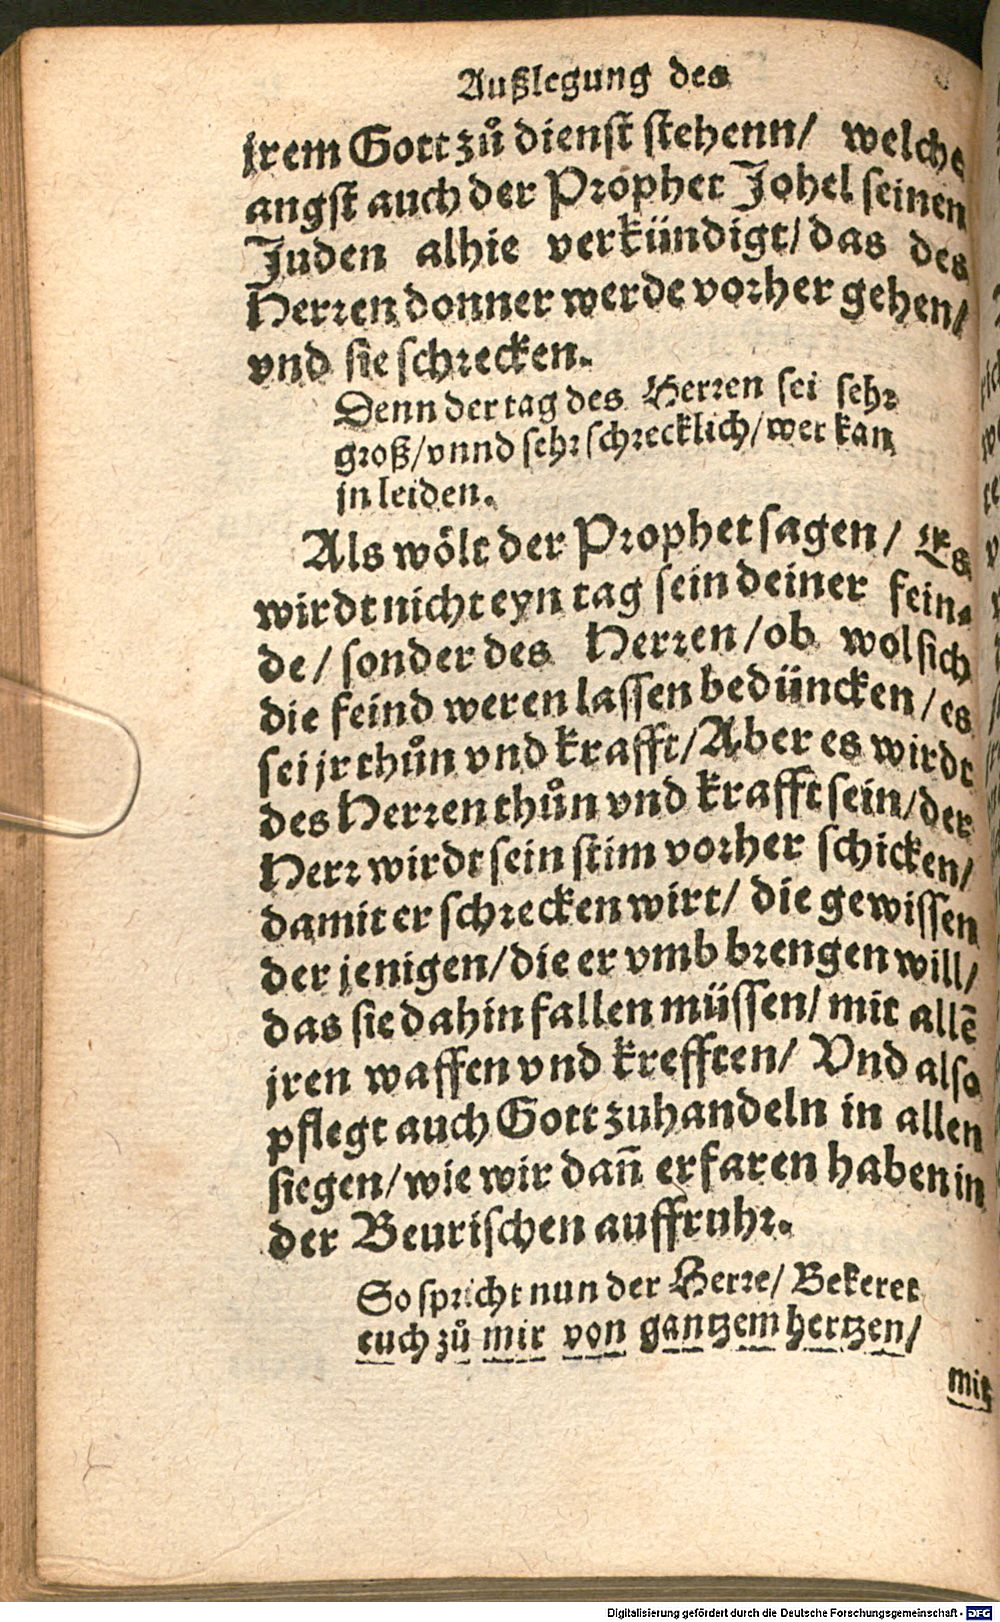 Außlegung des
jrem Gott zuͦ dienst stehenn/ welche
angst auch der Prophet Johel seinen
Juden alhie verkündigt/ das des
Herren donner werde vorher gehen/
vnd sie schrecken.
Denn der tag des Herren sei sehr
groß/ vnnd sehr schrecklich/ wer kan
jn leiden.
Als wölt der Prophet sagen/ Es
wirdt nicht eyn tag sein deiner fein⸗
de/ sonder des Herren/ ob wol sich
die feind weren lassen bedüncken/ es
sei jr thuͦn vnd krafft/ Aber es wirdt
des Herren thuͦn vnd krafft sein/ der
Herr wirdt sein stim vorher schicken/
damit er schrecken wirt/ die gewissen
der jenigen/ die er vmb brengen will/
das sie dahin fallen müssen/ mit allē
jren waffen vnd krefften/ Vnd also
pflegt auch Gott zuhandeln in allen
siegen/ wie wir dañ erfaren haben in
der Beurischen auffruhr.
So spricht nun der Herre/ Bekeret
euch zuͦ mir von gantzem hertzen/
mit
Digitalisierung gefördert durch die Deutsche Forschungsgemeinschaft - DFG